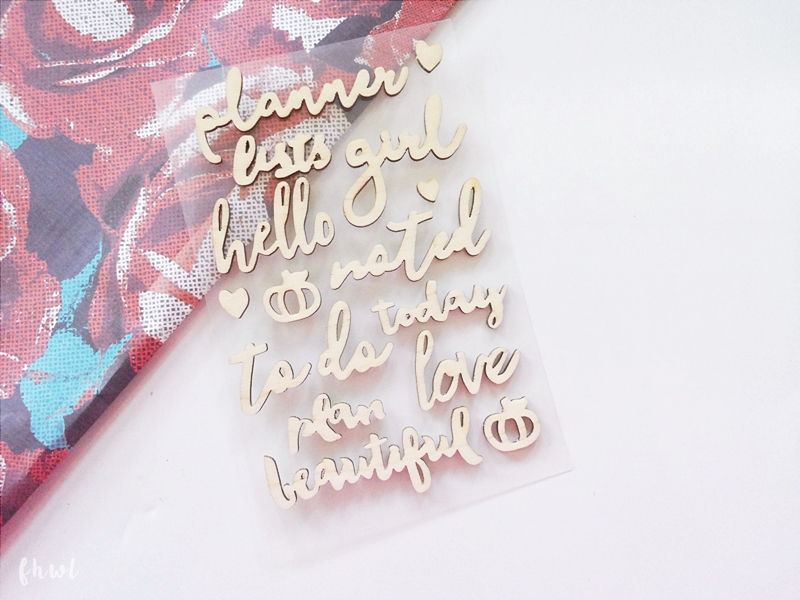 planner
lists girl
hello
noted
today
to do
love
plan
beautiful
fhwl